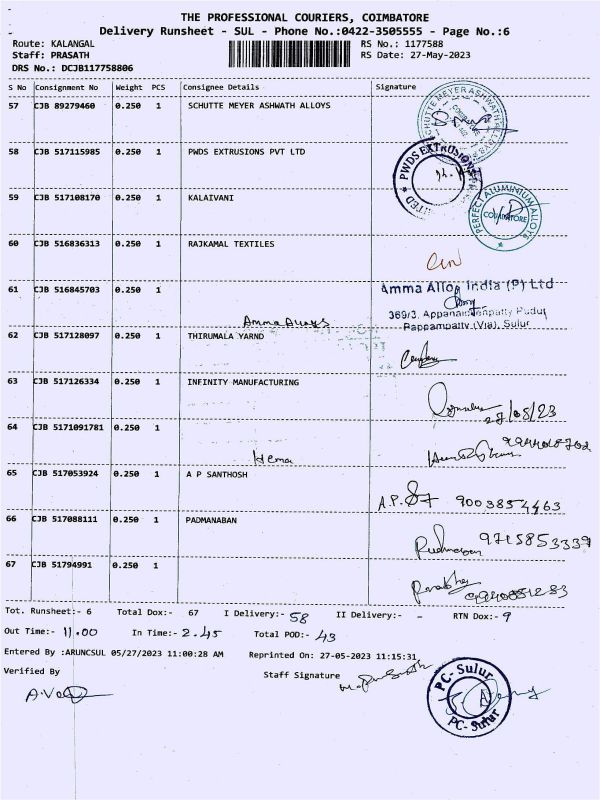 THE PROFESSIONAL COURIERS, COIMBATORE
Delivery Runsheet - SUL - Phone No.:0422-3505555 - Page No.:6
Route: KALANGAL RS No.: 1177588
Staff: PRASATH RS Date: 27-May-2023
DRS No.: DCJB117758806
S No Consignment No Weight PCS Consignee Details Signature
57 CJB 89279460 0.250 1 SCHUTTE MEYER ASHWATH ALLOYS
SCHUTTE MEYER ASHWATH ALLOYS
58 CJB 517115985 0.250 1 PWDS EXTRUSIONS PVT LTD
PWDS EXTRUSIONS
59 CJB 517108170 0.250 1 KALAIVANI
PERFECT ALUMINIUM ALLOYS
COIMBATORE
60 CJB 516836313 0.250 1 RAJKAMAL TEXTILES
61 CJB 516845703 0.250 1
Amma Alloy India (P) Ltd
369/3, Appanaickenpatty Pudur
Pappampatty (Via), Sulur
Amma Alloys
62 CJB 517128097 0.250 1 THIRUMALA YARND
63 CJB 517126334 0.250 1 INFINITY MANUFACTURING
27/05/23
64 CJB 5171091781 0.250 1
Hema
65 CJB 517053924 0.250 1 A P SANTHOSH
A.P. 9003854463
66 CJB 517088111 0.250 1 PADMANABAN
9715853339
67 CJB 51794991 0.250 1
Tot. Runsheet:- 6 Total Dox:- 67 I Delivery:- 58 II Delivery:- - RTN Dox:- 9
Out Time:- 11.00 In Time:- 2.45 Total POD:- 43
Entered By :ARUNCSUL 05/27/2023 11:00:28 AM Reprinted On: 27-05-2023 11:15:31
Verified By Staff Signature
PC-Sulur
PC-Sulur